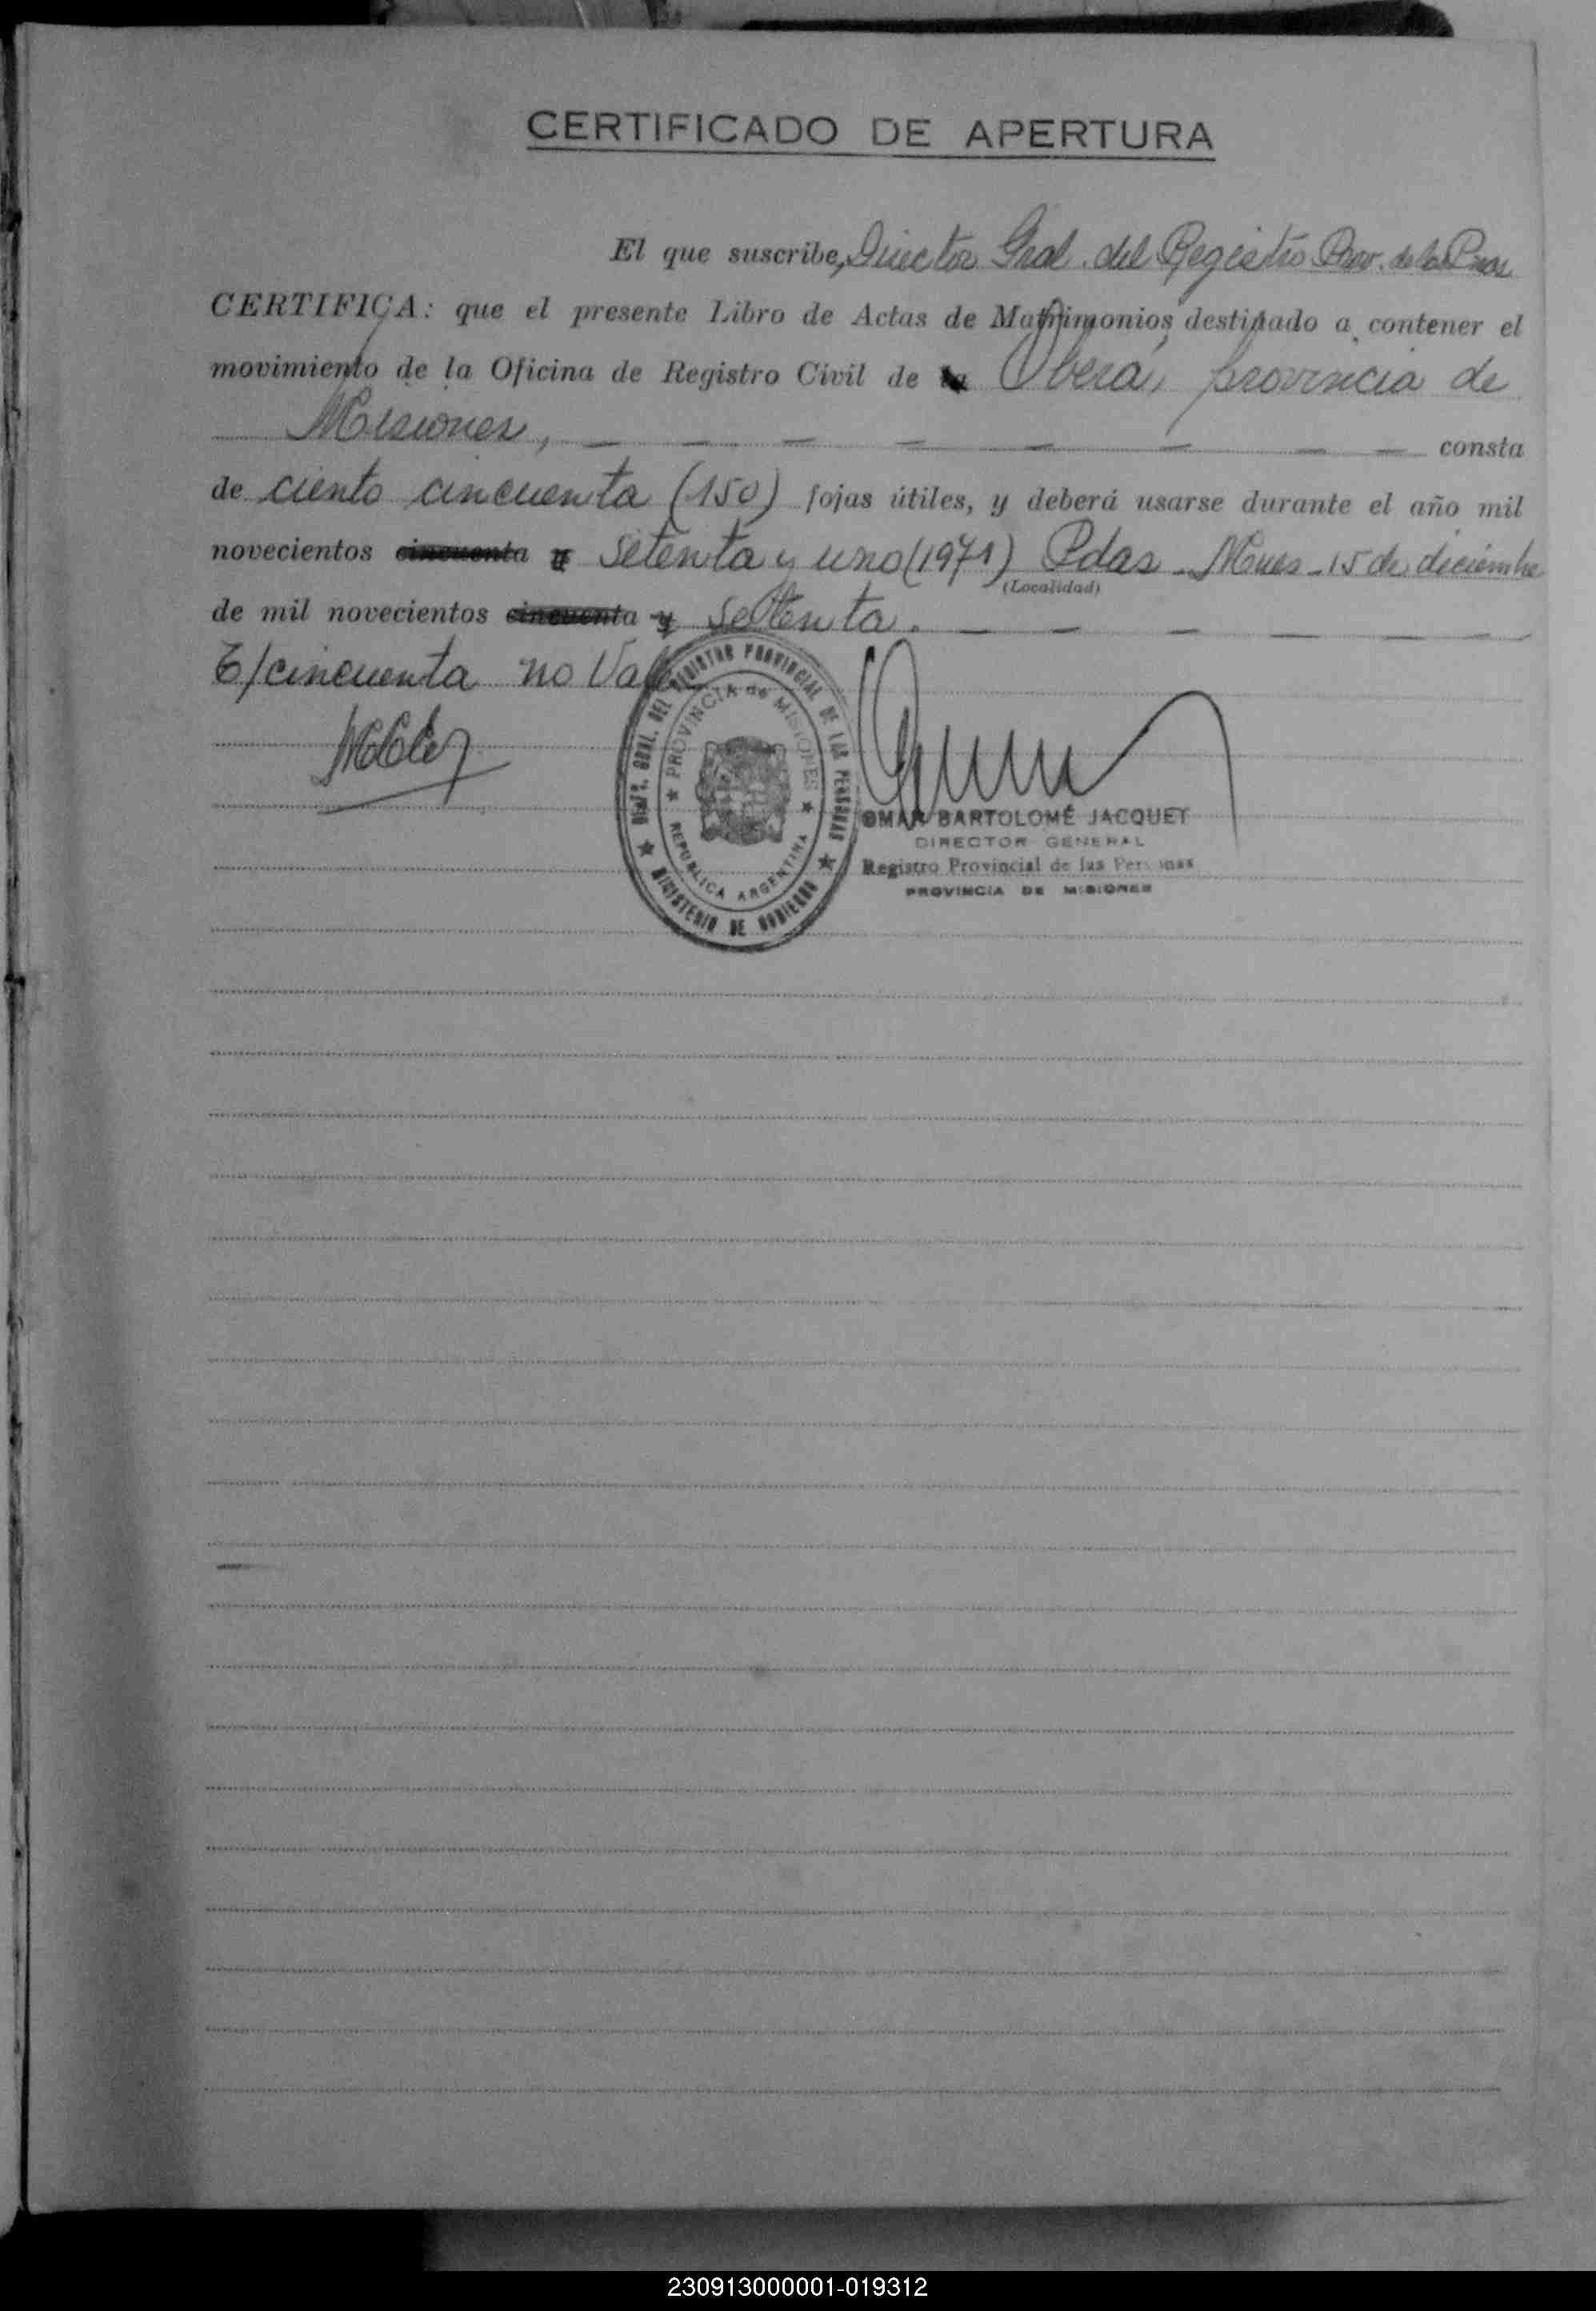 CERTIFICADO DE APERTURA
El que suscribe, Director Gral. del Registro Prov. de las Prnas
CERTIFICA: que el presente Libro de Actas de Matrimonios, destinado a contener el
movimiento de la Oficina de Registro Civil de la Oberá, provincia de
Misiones, — — — — — — — — consta
de ciento cincuenta (150) fojas útiles, y deberá usarse durante el año mil
novecientos cincuenta y setenta y uno (1971) Pdas - Mnes - 15 de diciembre
(Localidad)
de mil novecientos cincuenta y setenta. — — — — — —
T/cincuenta no Vale
DIREC. GRAL. DEL REGISTRO PROVINCIAL DE LAS PERSONAS
★ MINISTERIO DE GOBIERNO ★
★ PROVINCIA de MISIONES ★
REPUBLICA ARGENTINA
OMAR BARTOLOMÉ JACQUET
DIRECTOR GENERAL
Registro Provincial de las Personas
PROVINCIA DE MISIONES
230913000001-019312